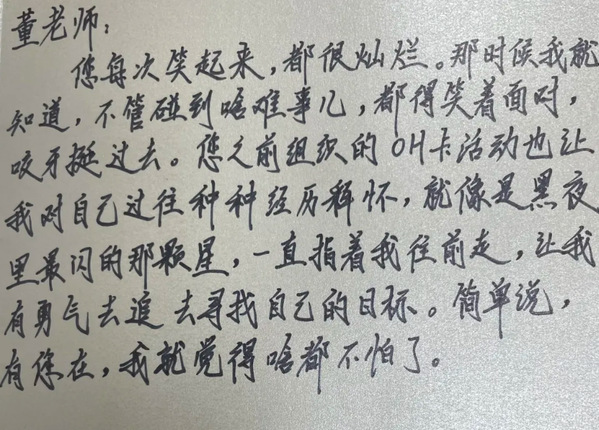 董老师：
您每次笑起来，都很灿烂。那时候我就
知道，不管碰到啥难事儿，都得笑着面对，
咬牙挺过去。您之前组织的OH卡活动也让
我对自己过往种种经历释怀，就像是黑夜
里最闪的那颗星，一直指着我往前走，让我
有勇气去追去寻找自己的目标。简单说，
有您在，我就觉得啥都不怕了。